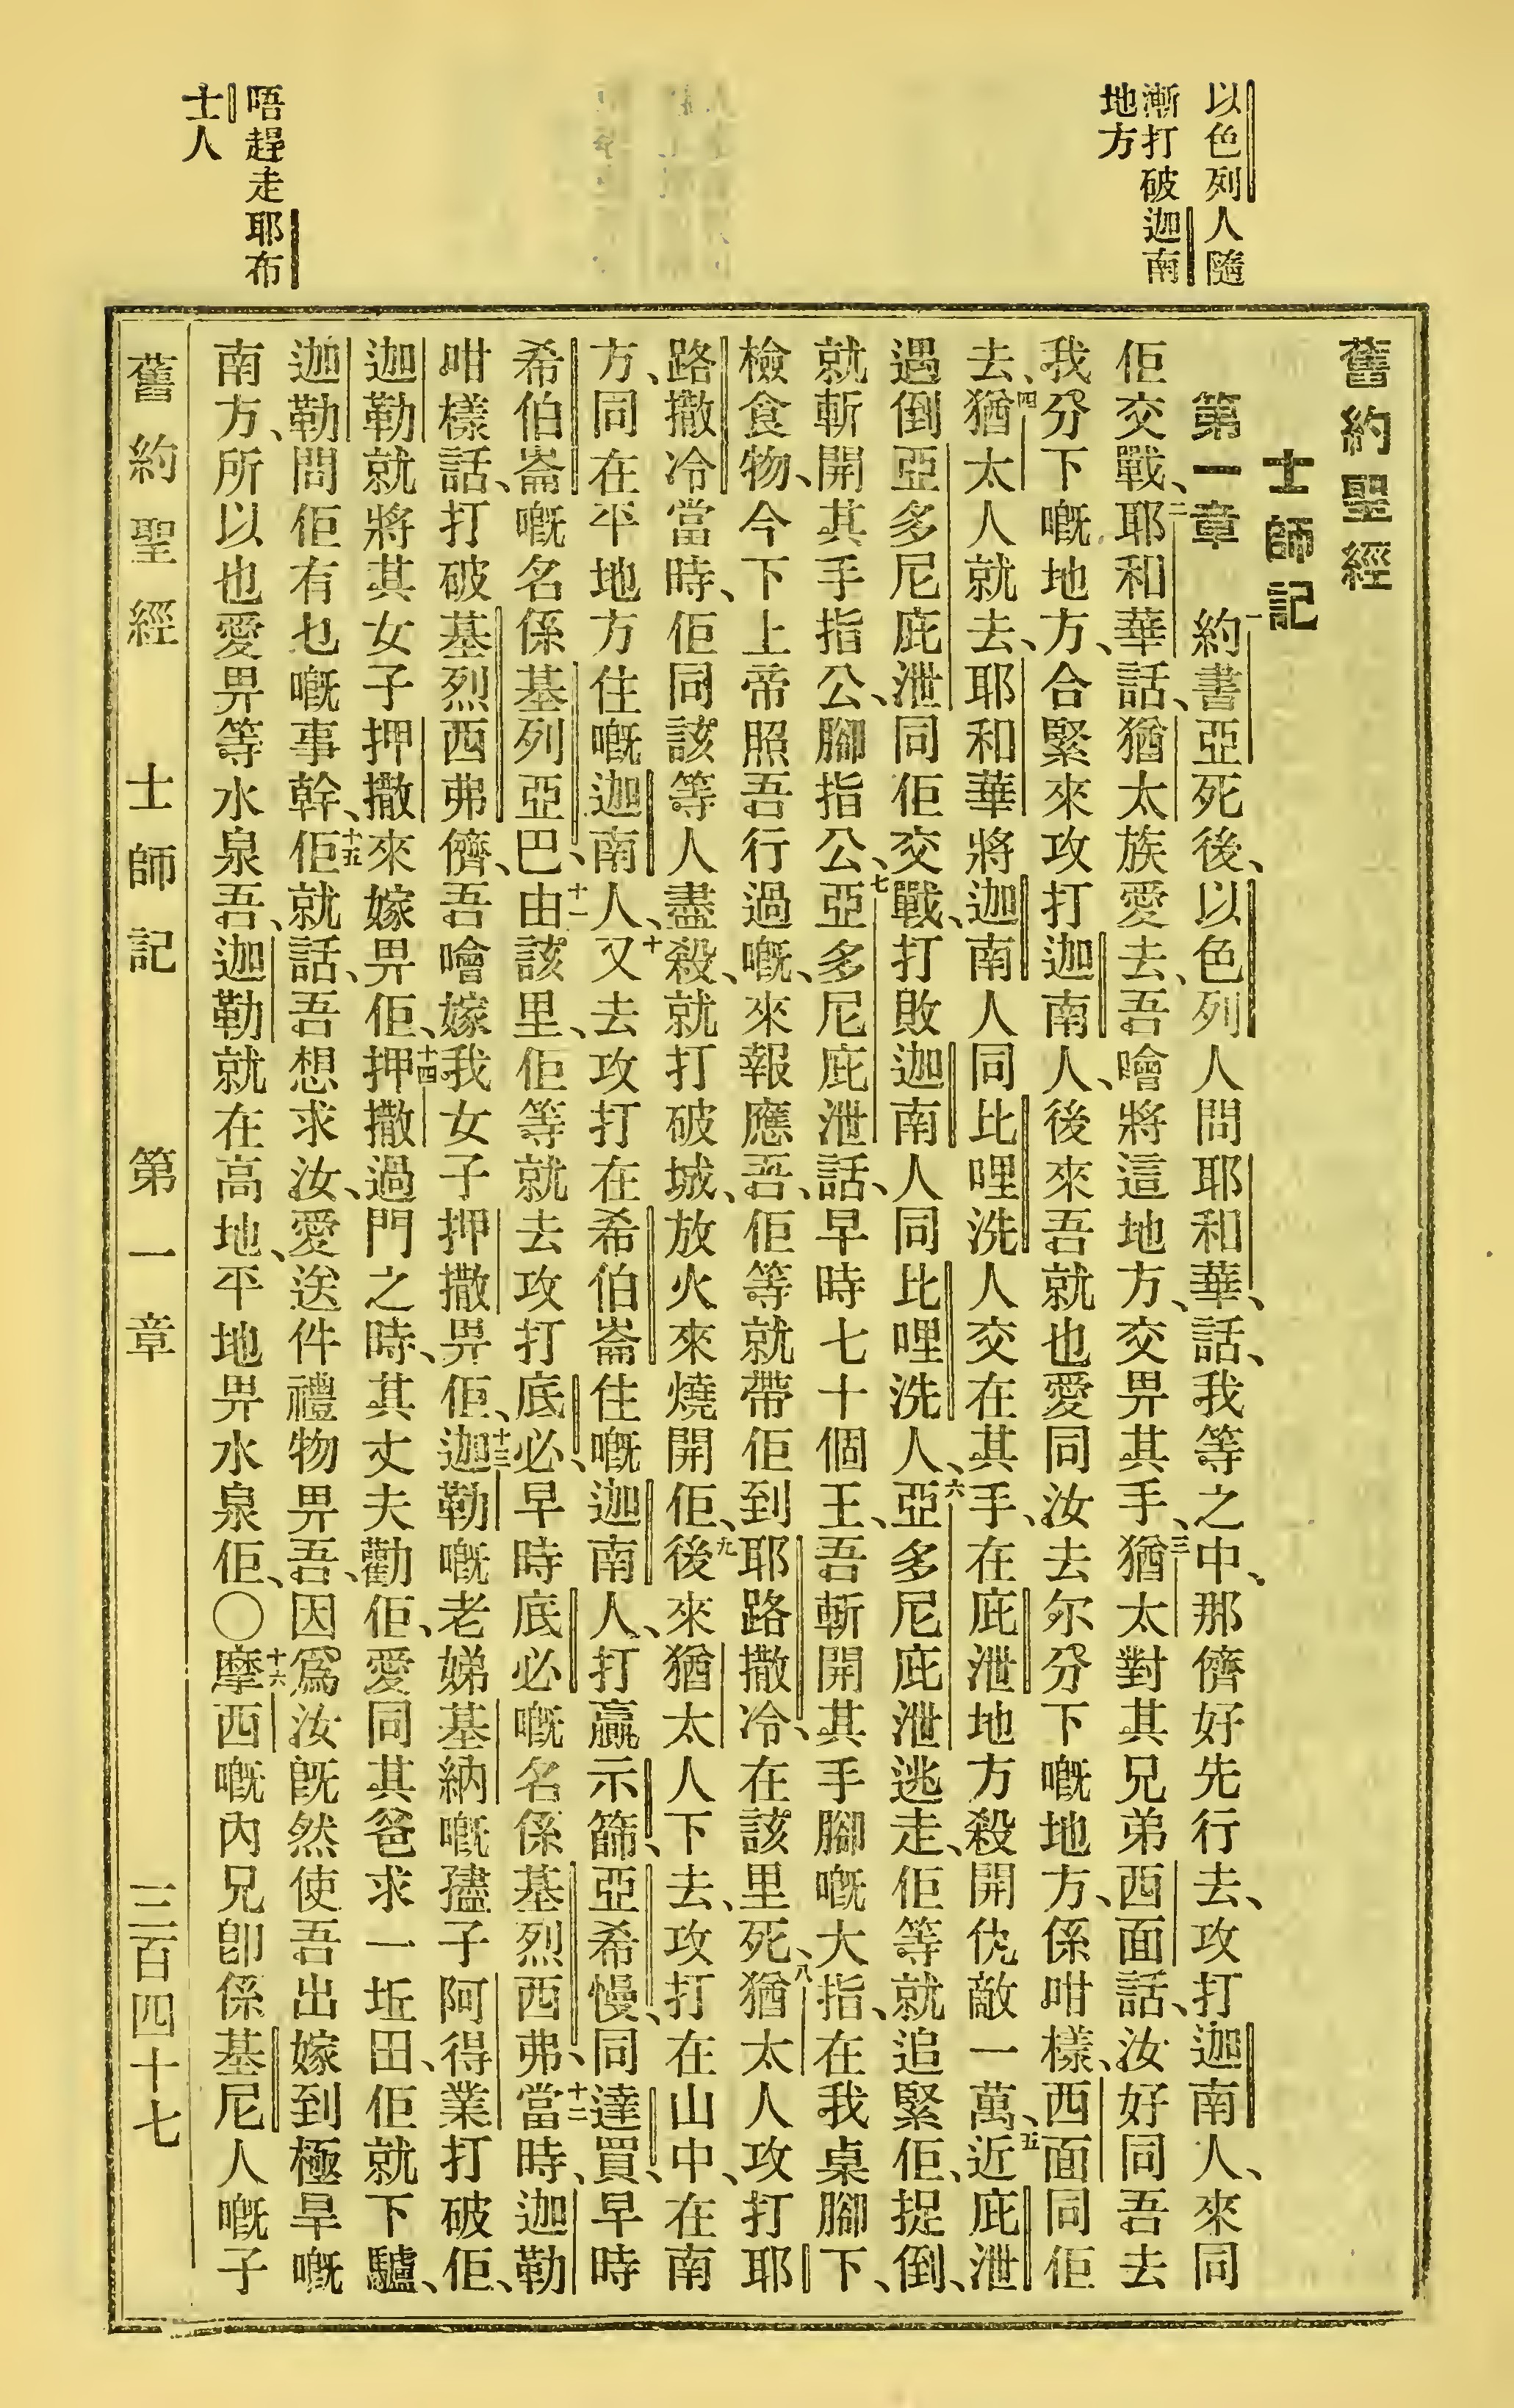 以色列人隨
漸打破迦南
地方
唔趕走耶布
士人
舊約聖經
士師記
第一章 一約書亞死後、以色列人問耶和華、話、我等之中、那儕好先行去、攻打迦南人、來同
佢交戰、二耶和華話、猶太族愛去、吾噲將這地方、交畀其手、三猶太對其兄弟西面話、汝好同吾去
我分下嘅地方、合緊來攻打迦南人、後來吾就也愛同汝去尔分下嘅地方、係咁樣、西面同佢
去、四猶太人就去、耶和華將迦南人同比哩洗人交在其手、在庇泄地方殺開仇敵一萬、五近庇泄
遇倒亞多尼庇泄同佢交戰、打敗迦南人同比哩洗人、六亞多尼庇泄逃走、佢等就追緊佢、捉倒、
就斬開其手指公、腳指公、七亞多尼庇泄話、早時七十個王、吾斬開其手腳嘅大指、在我桌腳下、
檢食物、今下上帝照吾行過嘅、來報應吾、佢等就帶佢到耶路撒冷、在該里死、八猶太人攻打耶
路撒冷當時、佢同該等人盡殺、就打破城、放火來燒開佢、九後來猶太人下去、攻打在山中、在南
方、同在平地方住嘅迦南人、十又去攻打在希伯崙住嘅迦南人、打贏示篩、亞希慢、同達買、早時
希伯崙嘅名係基列亞巴、十一由該里、佢等就去攻打底必、早時底必嘅名係基烈西弗、十二當時、迦勒
咁樣話、打破基烈西弗儕、吾噲嫁我女子押撒畀佢、十三迦勒嘅老娣基納嘅孻子阿得業打破佢、
迦勒就將其女子押撒來嫁畀佢、十四押撒過門之時、其丈夫勸佢、愛同其爸求一坵田、佢就下驢、
迦勒問佢有乜嘅事幹、十五佢就話、吾想求汝、愛送件禮物畀吾、因爲汝旣然使吾出嫁到極旱嘅
南方、所以也愛畀等水泉吾、迦勒就在高地、平地畀水泉佢、〇十六摩西嘅內兄卽係基尼人嘅子
舊約聖經 士師記 第一章 三百四十七